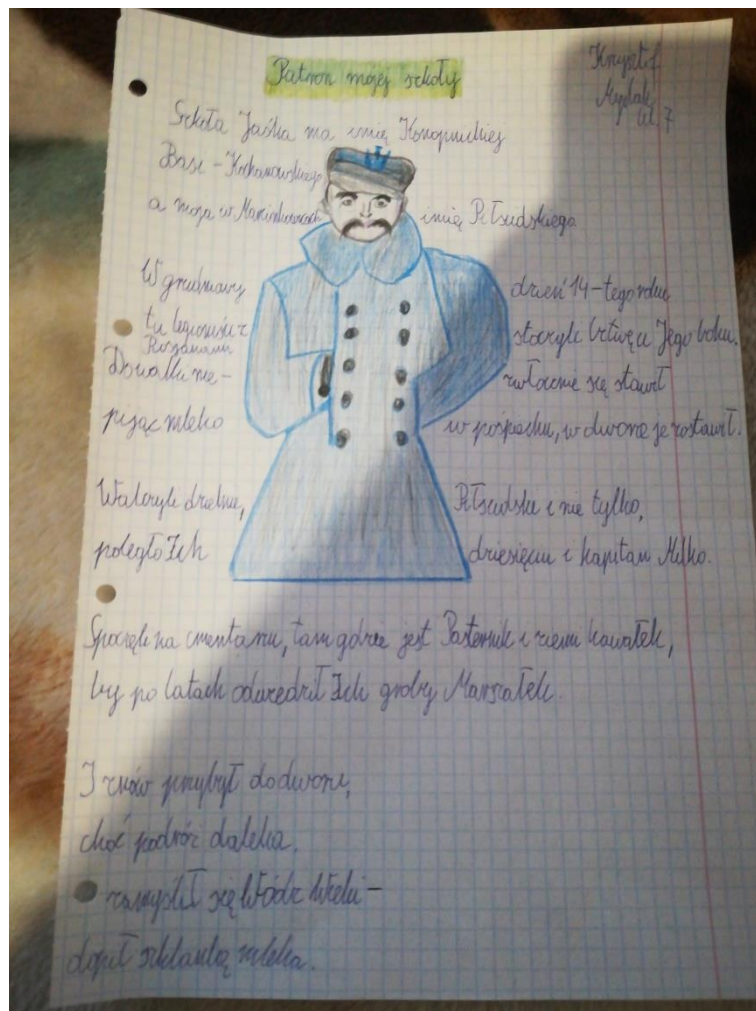 Patron mojej szkoły
Krzysztof
kl. 7
Szkoła Jaśka ma imię Konopnickiej
Basi - Kochanowskiego
a moja w Marcinkowicach imię Piłsudskiego
W grudniowy dzień 14-tego roku
tu legioniści z Rosjanami stoczyli bitwę u Jego boku.
Do walki nie- zwłocznie się stawił
pijąc mleko w pośpiechu, w dworze je zostawił.
Walczyli dzielnie, Piłsudski i nie tylko,
poległo Ich dziesięciu i kapitan Milko.
Spoczęli na cmentarzu, tam gdzie jest Pasternik i ziemi kawałek,
by po latach odwiedził Ich groby Marszałek.
I znów przybył do dworu,
choć podróż daleka,
zamyślił się Wódz Wielki -
dopił szklankę mleka.